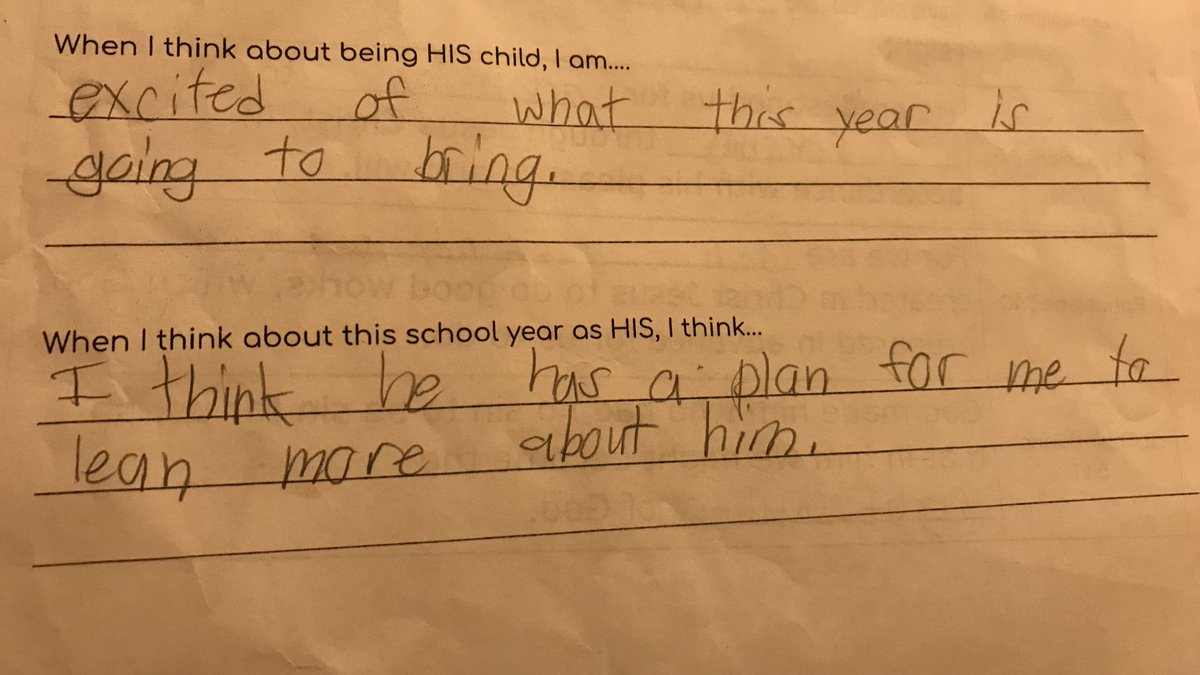 When I think about being HIS child, I am....
excited of what this year is
going to bring.
When I think about this school year as HIS, I think...
I think he has a plan for me to
lean more about him.